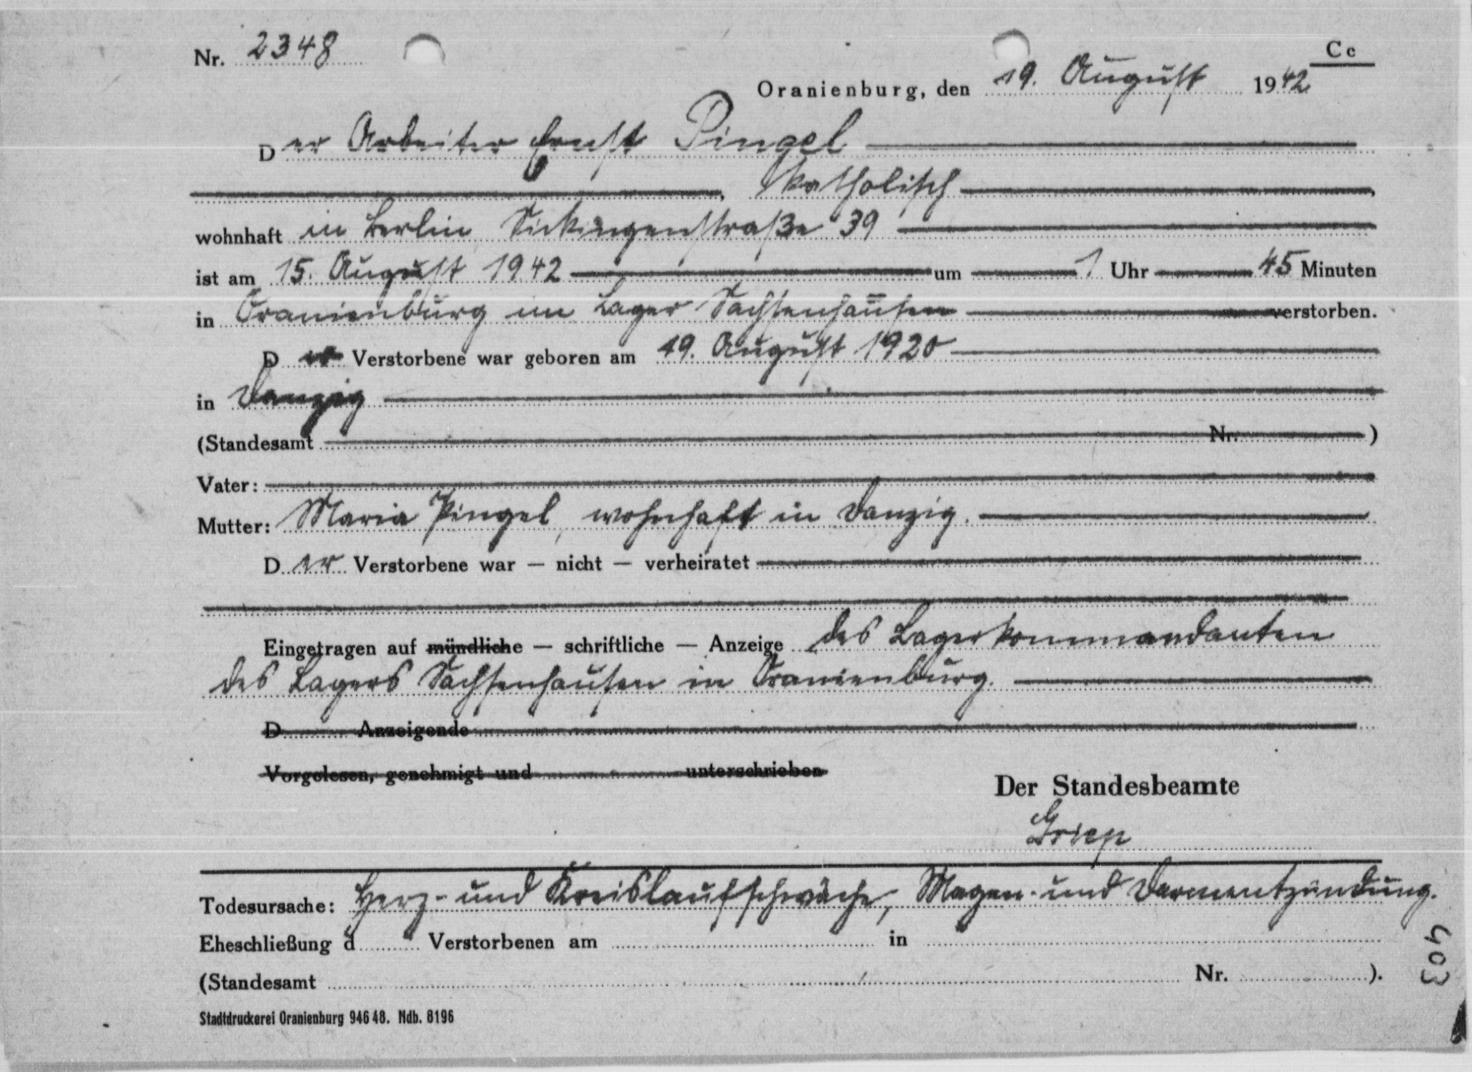 Nr. 2348
Cc
Oranienburg, den 19. August 1942
Der Arbeiter Ernst Pingel
, katholisch,
wohnhaft in Berlin, Sickingenstraße 39
ist am 15. August 1942 um 1 Uhr 45 Minuten
in Oranienburg im Lager Sachsenhausen verstorben.
Der Verstorbene war geboren am 19. August 1920
in Danzig
(Standesamt Nr. )
Vater:
Mutter: Maria Pingel, wohnhaft in Danzig.
Der Verstorbene war — nicht — verheiratet
Eingetragen auf mündliche — schriftliche — Anzeige des Lagerkommandanten
des Lagers Sachsenhausen in Oranienburg.
D Anzeigende
Vorgelesen, genehmigt und unterschrieben
Der Standesbeamte
Griep
Todesursache: Herz- und Kreislaufschwäche, Magen- und Darmentzündung.
Eheschließung d Verstorbenen am in
(Standesamt Nr. ).
403
Stadtdruckerei Oranienburg 946 48. Ndb. 8196